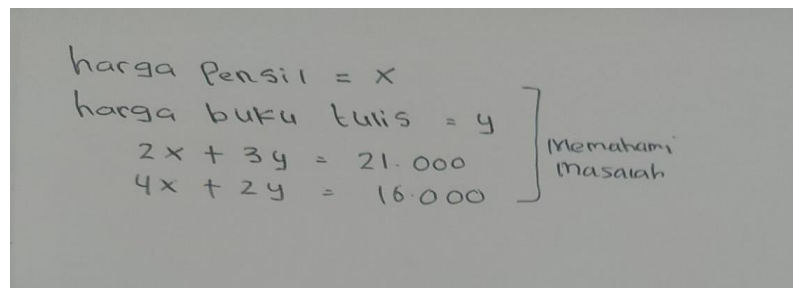 harga Pensil = x
harga buku tulis = y
2x + 3y = 21.000
4x + 2y = 16.000
Memahami
masalah